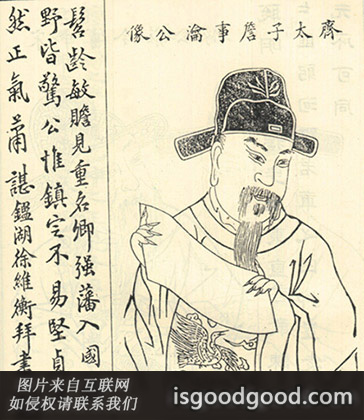 齊太子詹事瀹公像
髫齡敏贍見重名卿强藩入國
野皆驚公惟鎮定不易堅貞
然正氣 諶鑑湖徐維衡拜書
图片来自互联网
如侵权请联系我们
isgoodgood.com